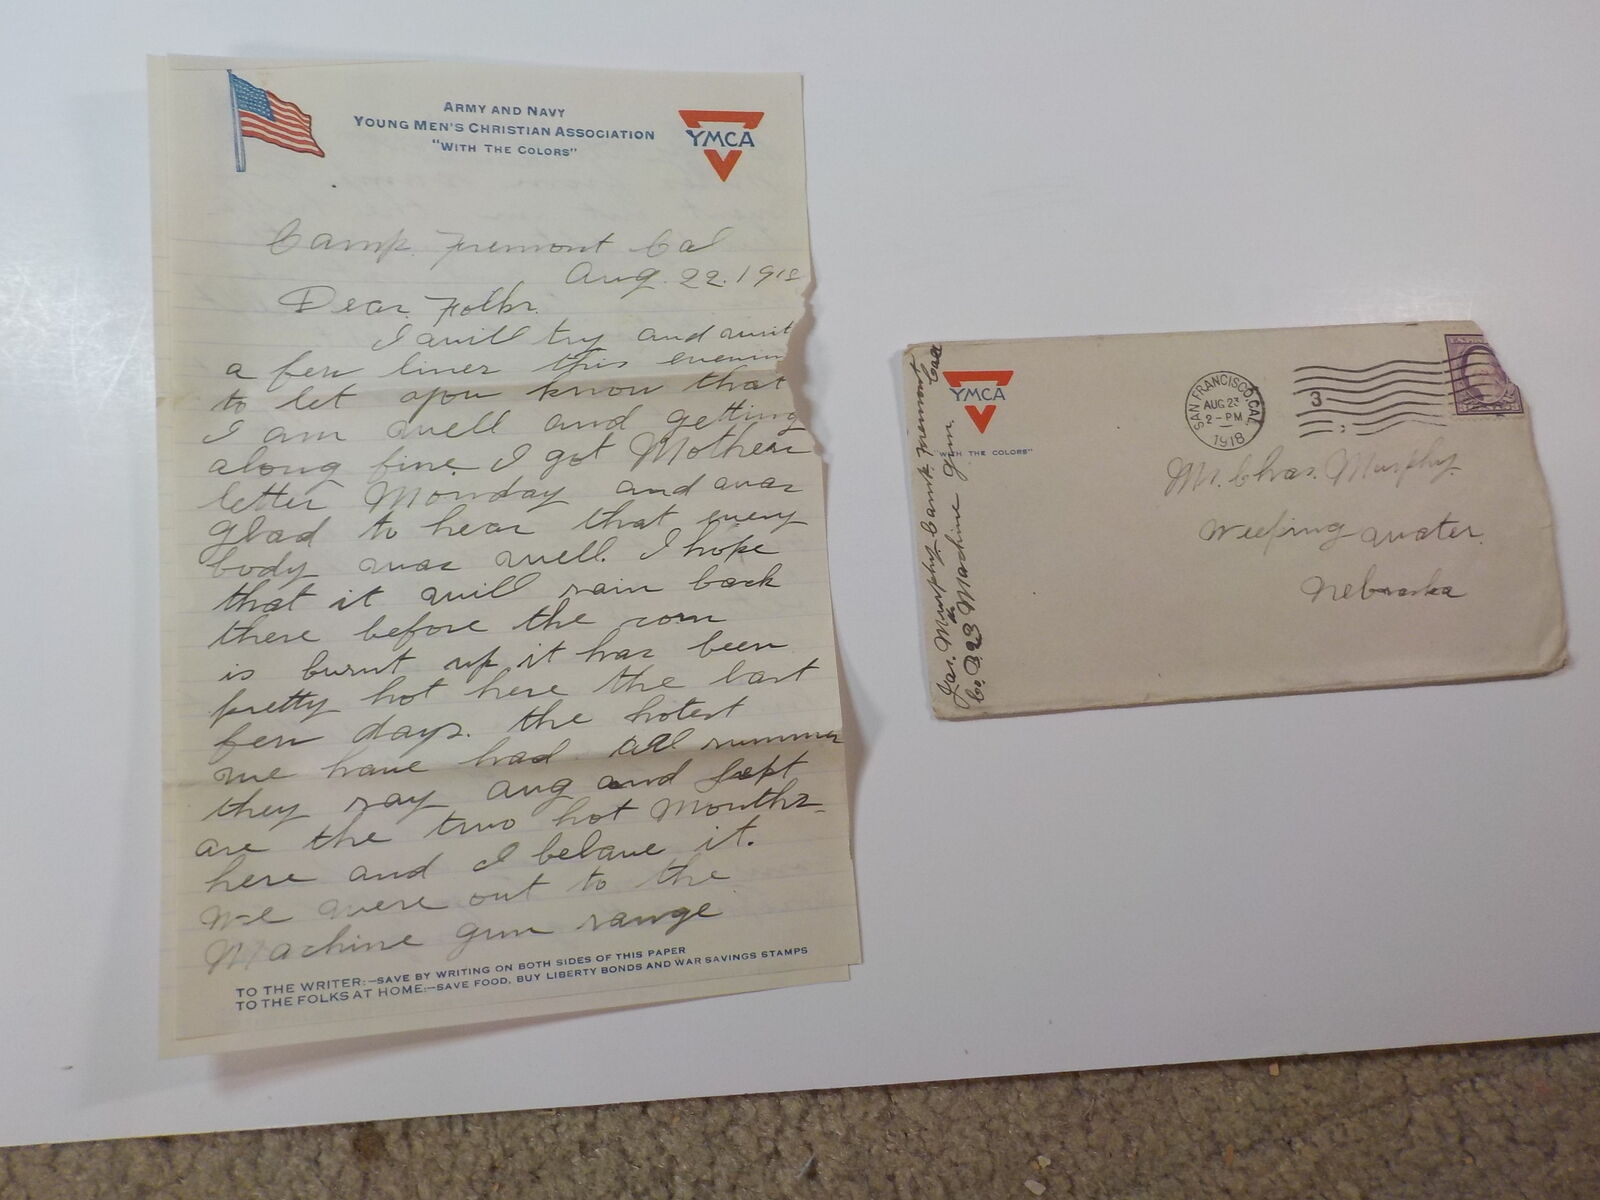 ARMY AND NAVY
YOUNG MEN'S CHRISTIAN ASSOCIATION
"WITH THE COLORS"
YMCA
Camp. Fremont Cal
Aug. 22. 1918
Dear. Folks.
I will try and writ
a few lines this evenin
to let you know that
I am well and getting
along fine. I got Mothers
letter Monday and was
glad to hear that every
body was well. I hope
that it will rain back
there before the corn
is burnt up, it has been
pretty hot here the last
few days. the hotest
we have had all summer
they say aug and Sept
are the two hot Months
here and I belave it.
We were out to the
Machine gun range
TO THE WRITER:-SAVE BY WRITING ON BOTH SIDES OF THIS PAPER
TO THE FOLKS AT HOME:-SAVE FOOD, BUY LIBERTY BONDS AND WAR SAVINGS STAMPS
Jas. Murphy. Camp. Fremont Cal
Co. B 23 Machine Gun.
YMCA
"WITH THE COLORS"
SAN FRANCISCO, CAL.
AUG 23
2-PM
1918
3
Mr. Chas. Murphy.
Weeping water.
Nebraska